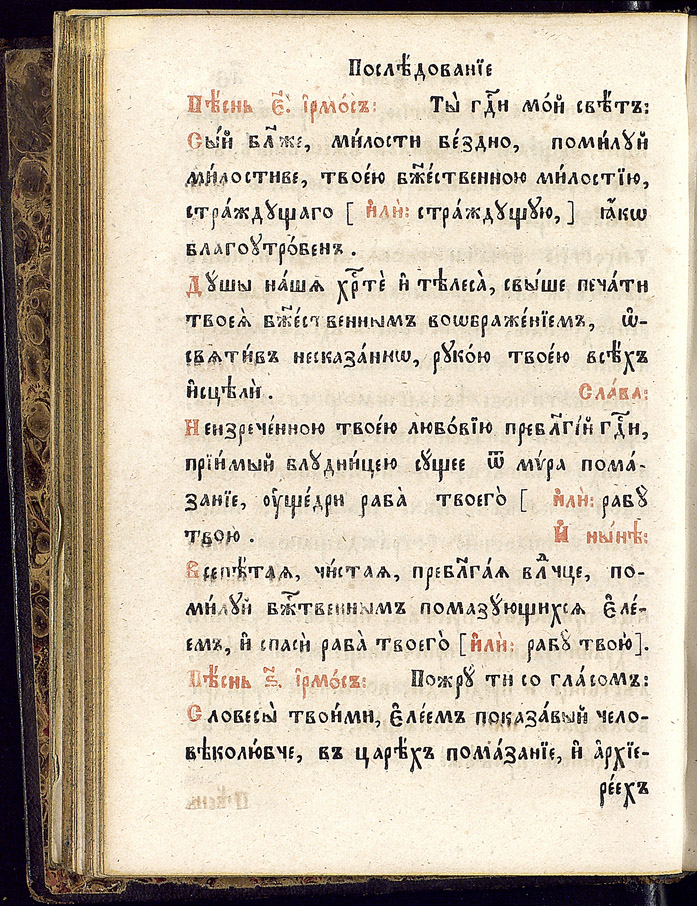 Послѣ́дованїе
Пѣ́снь є҃. і҆рмо́съ: Ты̀ гдⷭ҇и мо́й свѣ́тъ:
Сы́й бл҃же, ми́лости бе́здно, поми́лꙋй
ми́лостиве, твое́ю бж҃е́ственною ми́лостїю,
стра́ждꙋщаго [ и҆лѝ: стра́ждꙋщꙋю,] ꙗ҆́кѡ
благоꙋтро́бенъ.
Дꙋшы̀ на́шѧ хрⷭ҇тѐ и҆ тѣлеса̀, свы́ше печа́ти
твоеѧ̀ бж҃е́ственнымъ воѡбраже́нїемъ, ѡ҆-
свѧти́въ несказа́ннѡ, рꙋко́ю твое́ю всѣ́хъ
и҆сцѣлѝ. Сла́ва:
Неизрече́нною твое́ю любо́вїю превл҃гі́й гдⷭ҇и,
прїи́мый блꙋдни́цею сꙋ́щее ѿ мѵ́ра пома́-
занїе, ᲂу҆ще́дри раба̀ твоего̀ [ и҆лѝ: рабꙋ̀
твою. И҆ ны́нѣ:
Всепѣ́таѧ, чи́стаѧ, пребл҃га́ѧ влⷣчце, по-
ми́лꙋй бжⷭ҇твеннымъ помазꙋ́ющихсѧ є҆ле́-
емъ, и҆ спасѝ раба̀ твоего̀ [и҆лѝ: рабꙋ̀ твою̀].
Пѣ́снь ѕ҃. і҆рмо́съ: Пожрꙋ́ ти со гла́сомъ:
Словесы̀ твои́ми, є҆ле́емъ показа́вый чело-
вѣколю́бче, въ царѣ́хъ пома́занїе, и҆ а҆рхїе-
ре́ехъ